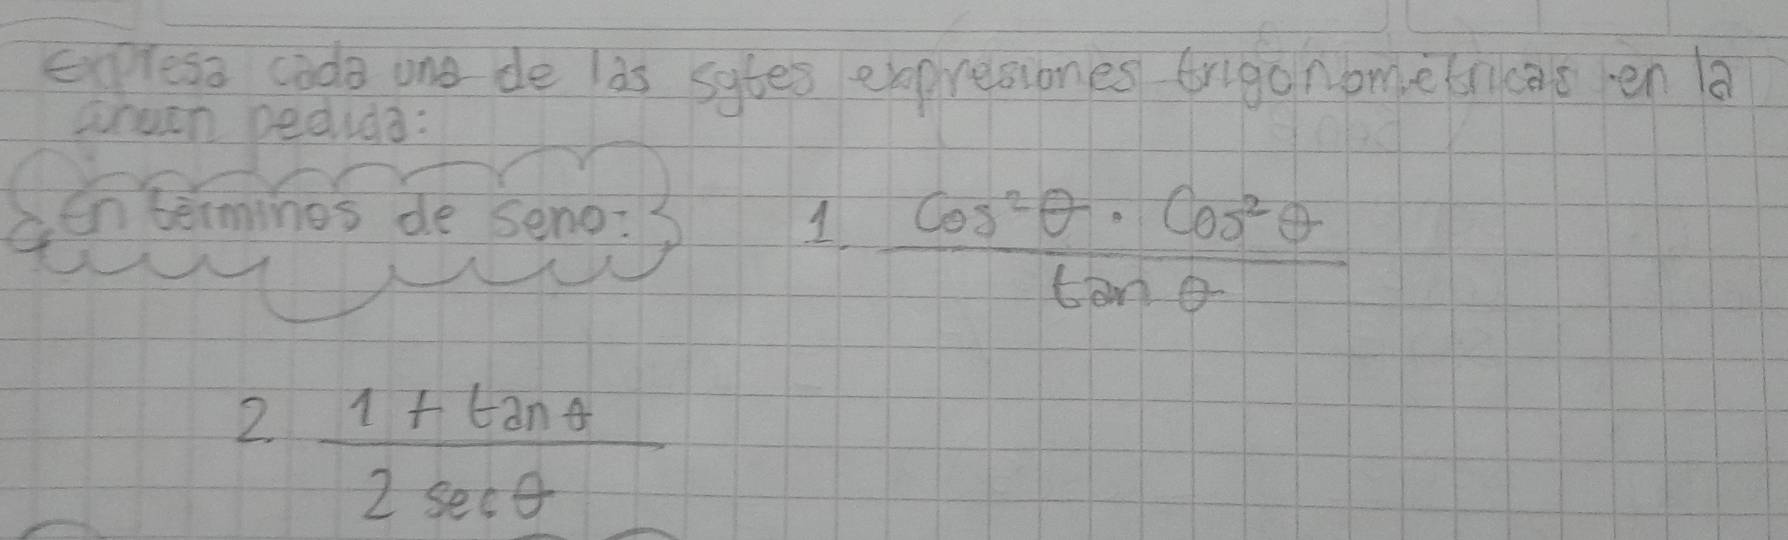 Expresa cada una de las sgtes expresiones trigonométricas en la
pedida:
En términos de seno:
1. Cos²θ · Cos²θ
tan θ
2. 1 + tan θ
2 sec θ